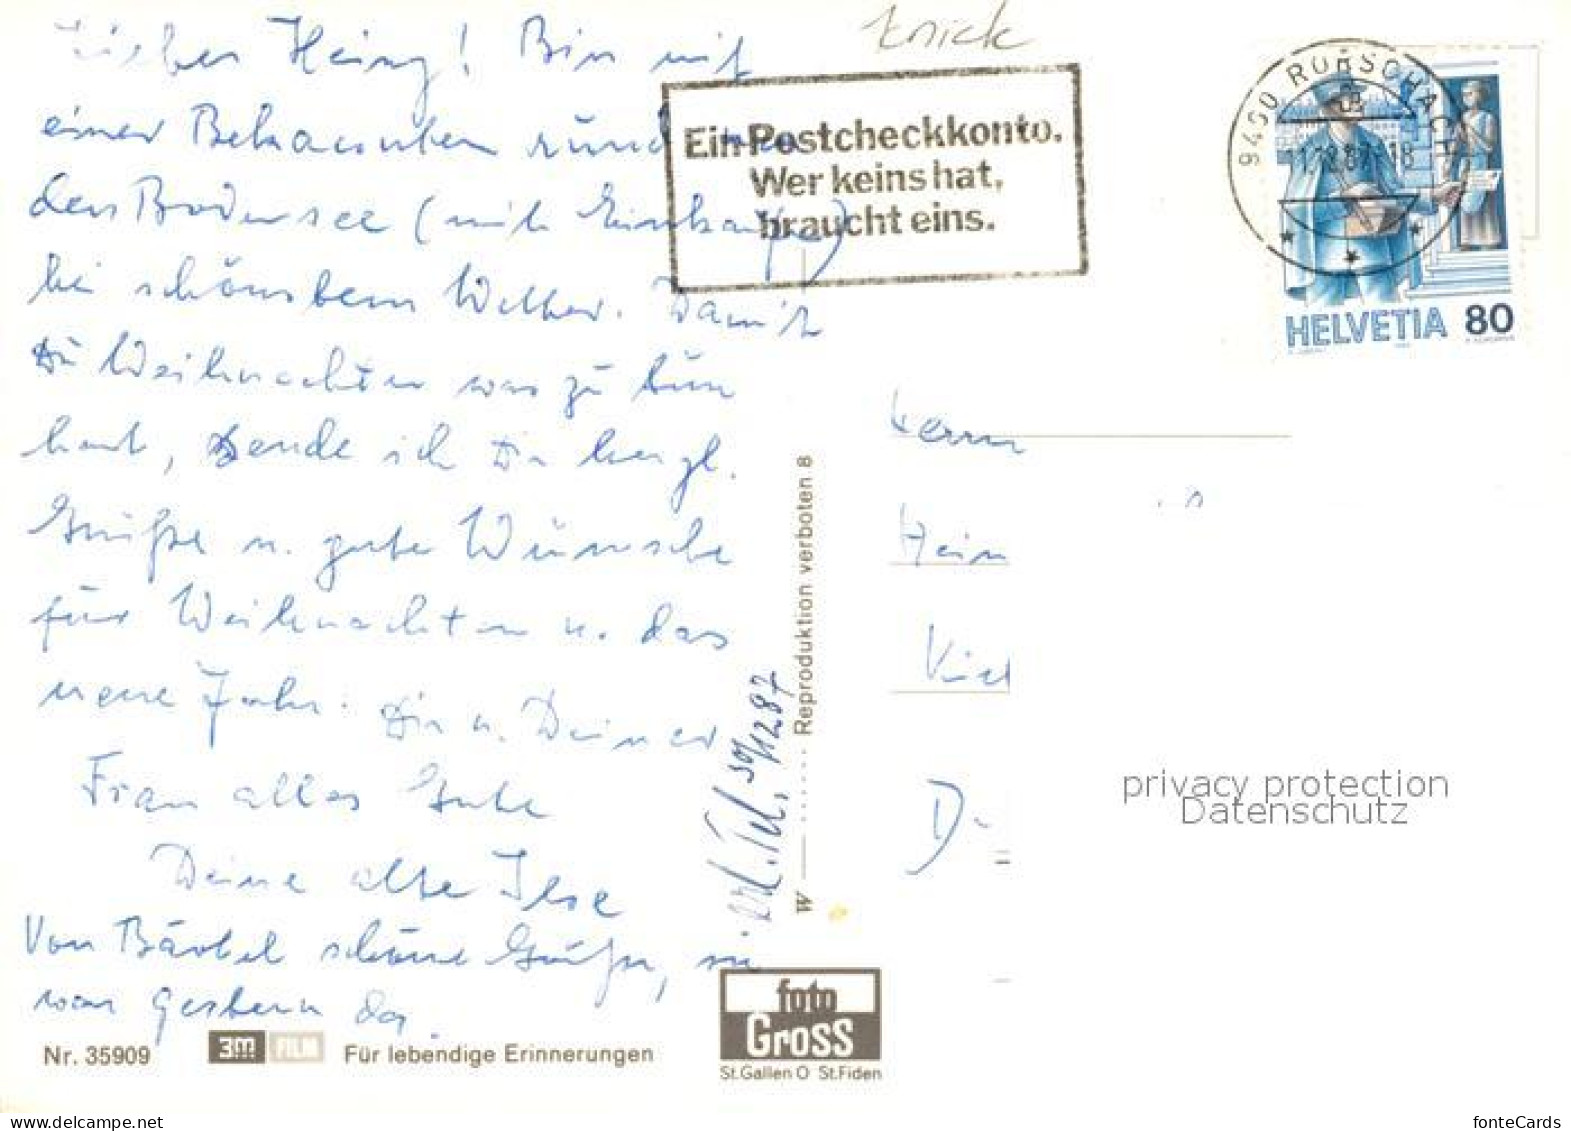 knick
Lieber Heinz! Bin mit
einer Bekannten rund um
den Bodensee (mit Einkäufe)
bei schönstem Wetter. Damit
Du Weihnachten was zu tun
hast, sende ich Dir herzl.
Grüße u. gute Wünsche
für Weihnachten u. das
neue Jahr. Dir u. Deiner
Frau alles Gute
Deine alte Ilse
Von Bärbel schöne Grüße, sie
war gestern da.
Ein Postcheckkonto.
Wer keins hat,
braucht eins.
9400 RORSCHACH
HELVETIA 80
Herrn
Hein
D-
erl. Tel. 30/12 87
W Reproduktion verboten 8
privacy protection
Datenschutz
foto
Gross
St.Gallen O St.Fiden
Nr. 35909 3M FILM Für lebendige Erinnerungen
www.delcampe.net
fonteCards